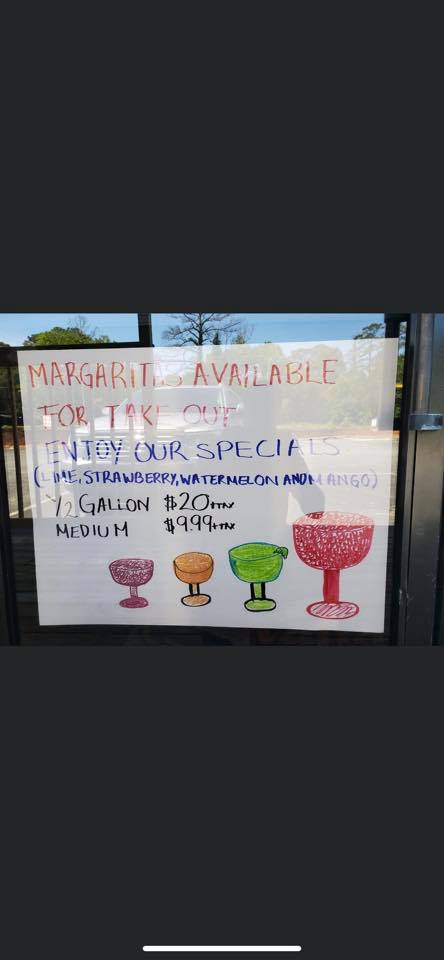 MARGARITAS AVAILABLE
FOR TAKE OUT
ENJOY OUR SPECIALS
(LIME, STRAWBERRY, WATERMELON AND MANGO)
1/2 GALLON $20+TAX
MEDIUM $9.99+TAX